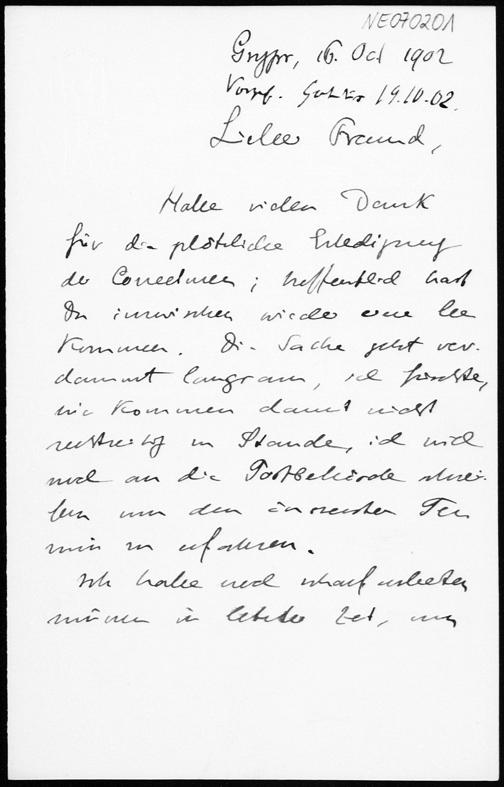 NE070201
16. Oct 1902
19.10.02.
Lieber Freund,
Habe vielen Dank
für die plötzliche Erledigung
der Correcturen; hoffentlich hast
Du inzwischen wieder eine be
kommen. Die Sache geht ver-
dammt langsam, ich fürchte,
wir kommen damit nicht
rechtzeitig zu Stande, ich will
mal an die Postbehörde schrei-
ben um den äussersten Ter
min zu erfahren.
Ich habe noch scharf arbeiten
müssen in letzter Zeit, um